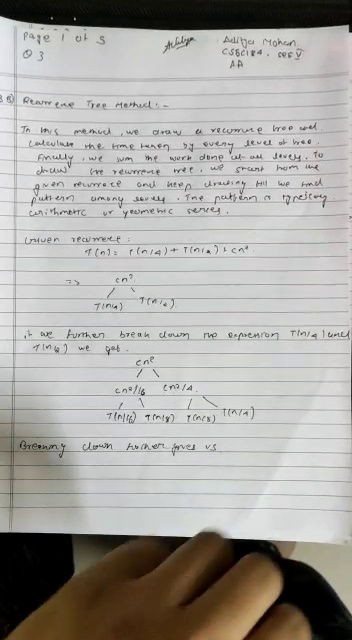 Page 1 of 5
Aditya
Aditya Mohan
CSE sec V
Q 3
AA
Recurrence Tree Method : -
In this method, we draw a recurrence tree and
calculate the time taken by every level of tree.
Finally, we sum the work done at all levels. To
draw the recurrence tree, we start from the
given recurrence and keep drawing till we find
pattern among levels. The pattern is typically
arithmetic or geometric series.
Given recurrence :
T(n) = T(n/4) + T(n/2) + cn²
=> cn²
T(n/4) T(n/2)
if we further break down the expression T(n/4) and
T(n/2) we get.
cn²
cn²/16 cn²/4
T(n/16) T(n/8) T(n/8) T(n/4)
Breaking down further gives us